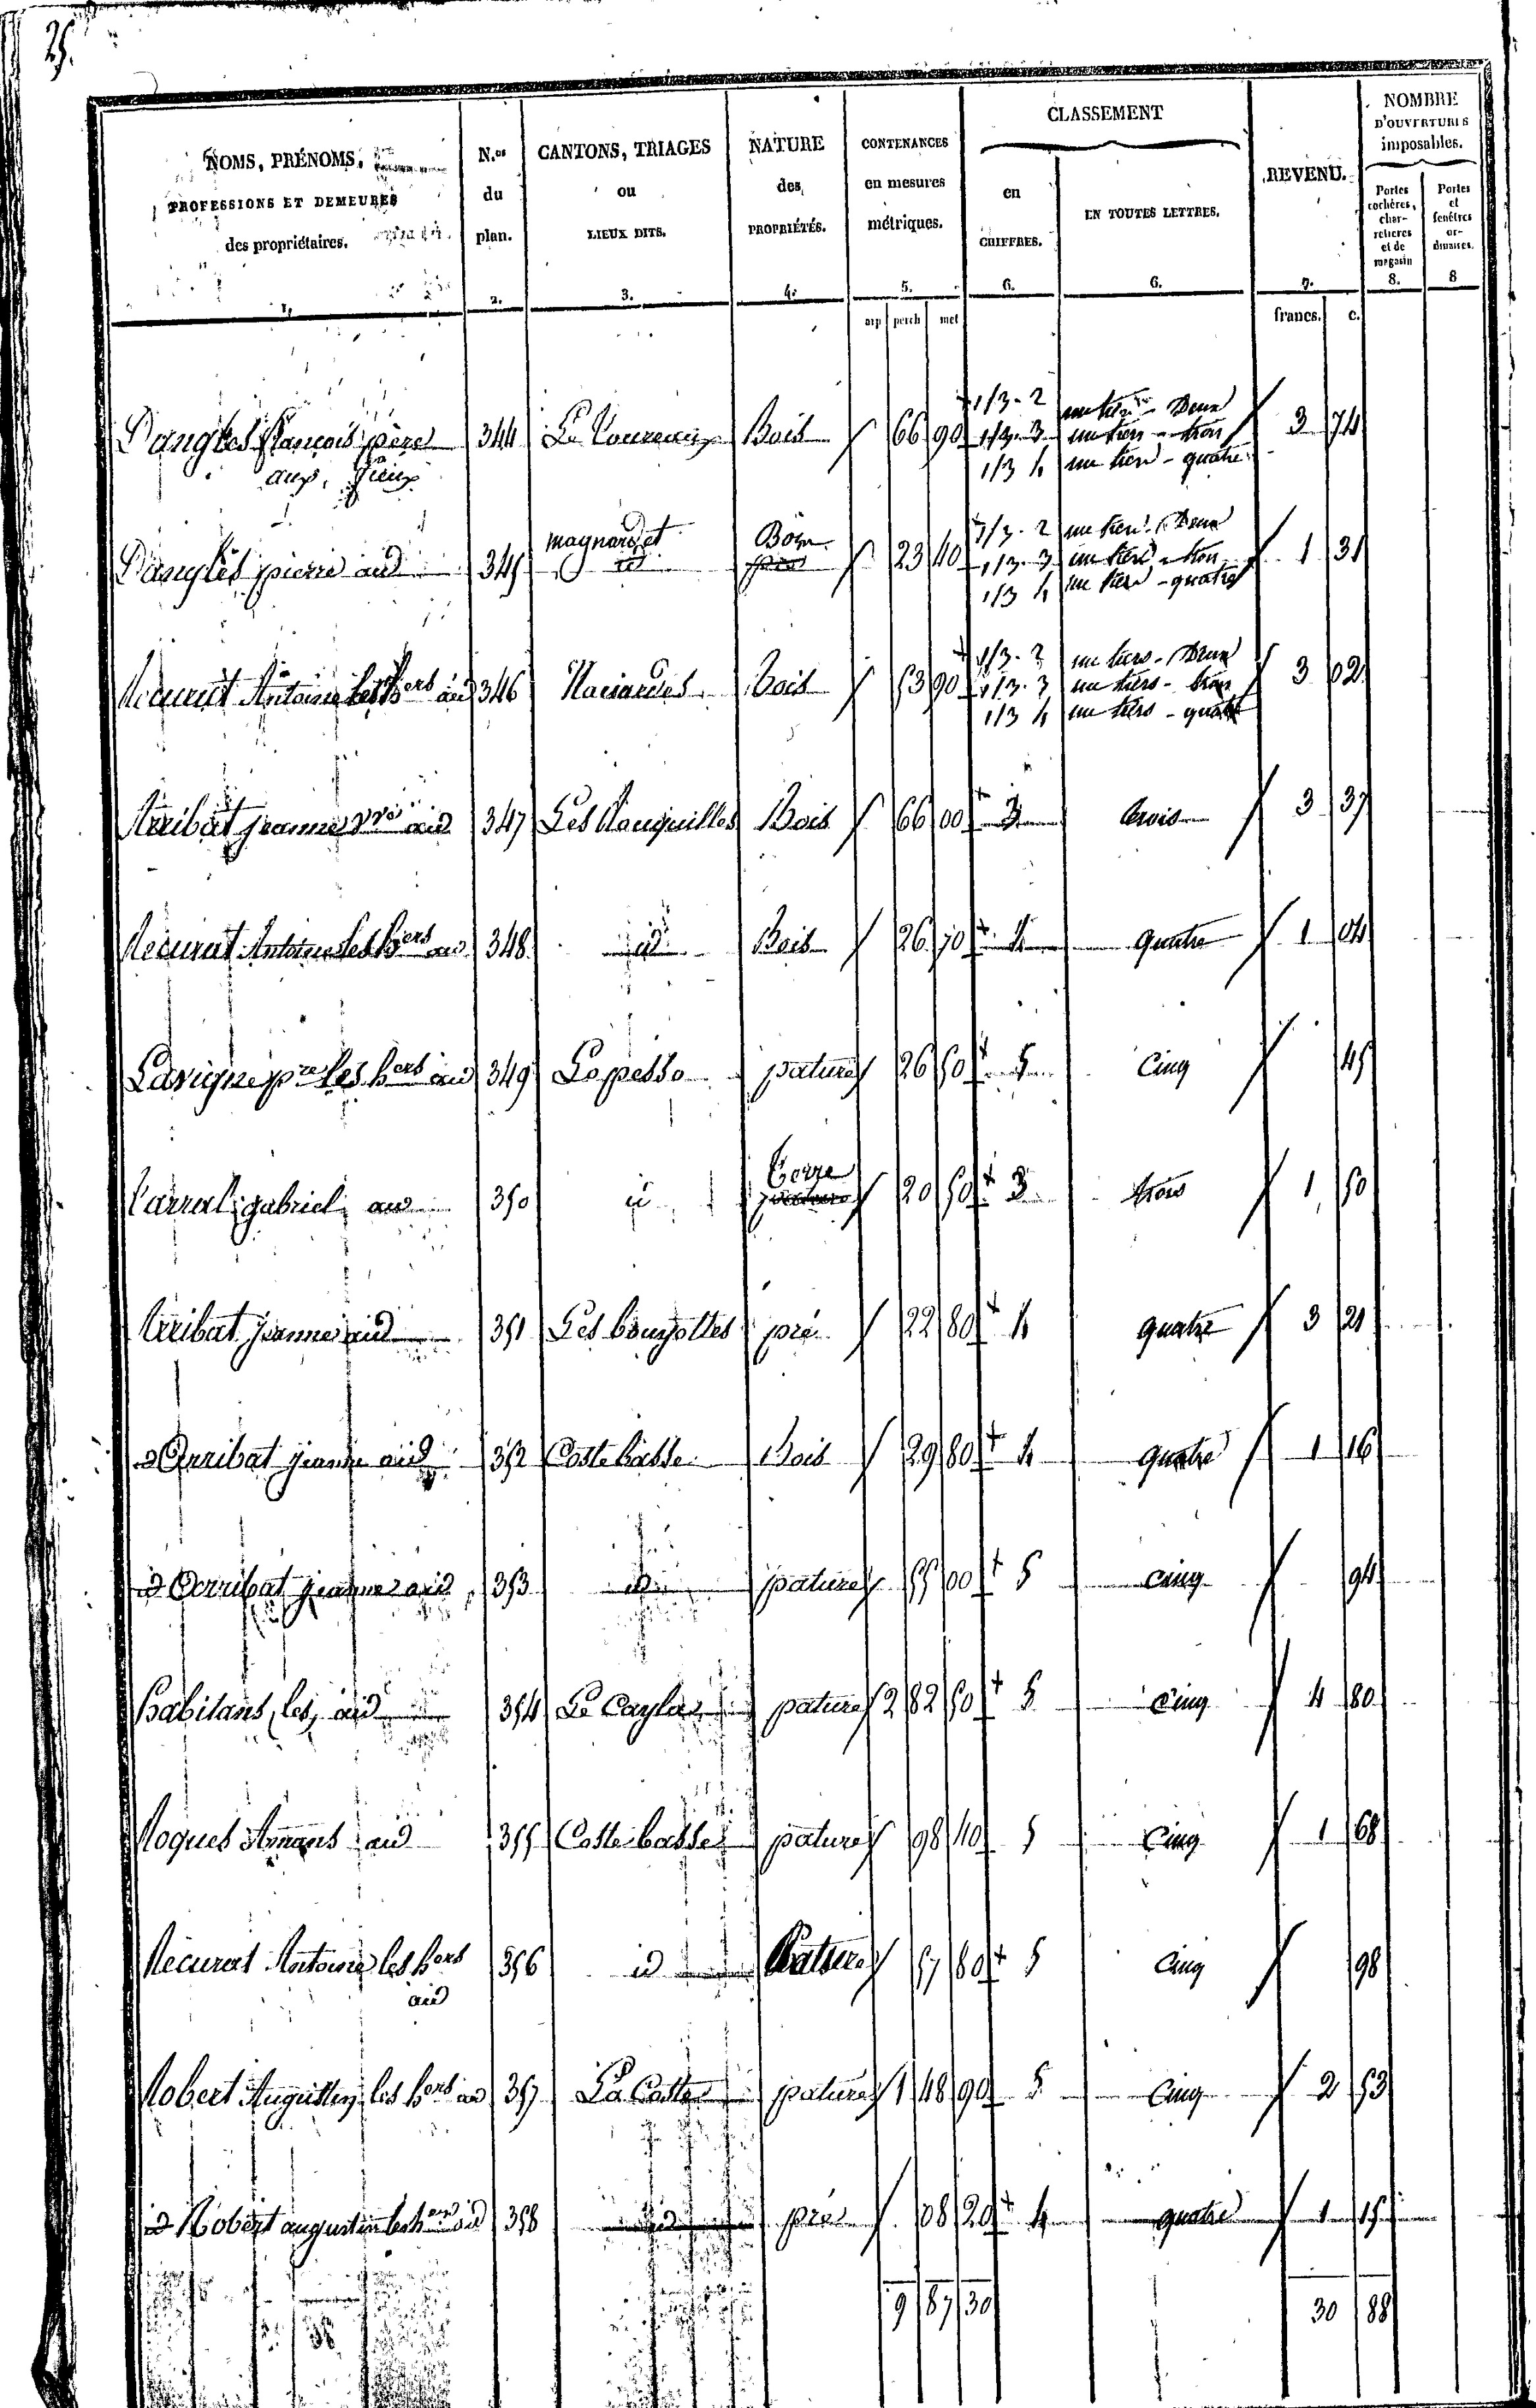 25.
NOMS, PRÉNOMS, PROFESSIONS ET DEMEURES des propriétaires. 1.
N.os du plan. 2.
CANTONS, TRIAGES ou LIEUX DITS. 3.
NATURE des PROPRIÉTÉS. 4.
CONTENANCES en mesures métriques. 5.
CLASSEMENT
en CHIFFRES. 6.
EN TOUTES LETTRES. 6.
REVENU. 7.
NOMBRE D'OUVERTURES imposables.
Portes cochères, charretières et de magasin 8.
Portes et fenêtres ordinaires. 8
arp perch met francs. c.
1/3 - 2 un tiers - Deux
Dangles françois père 344 Bois 66 90 1/3 - 3 un tiers - trois 3 74
aux fieux 1/3 4 un tiers - quatre
magnardet Bois 1/3 - 2 un tiers - Deux
Dangles pierre aud 345 id pré 23 40 1/3 - 3 un tiers - trois 1 31
1/3 4 un tiers - quatre
1/3 - 2 un tiers - Deux
Récurat Antoine les hers aud 346 bois 53 90 1/3 - 3 un tiers - trois 3 02
1/3 4 un tiers - quatre
Arribat jeanne aud 347 Les Bois 66 00 3 trois 3 37
Récurat Antoine les hers aud 348 id Bois 26 70 4 quatre 1 04
Lavigne pre les hers aud 349 Lo pesso pature 26 50 5 Cinq 45
terre
Carral gabriel aud 350 id pature 20 50 3 trois 1 50
Arribat jeanne aud 351 Les bouyottes pré 22 80 4 quatre 3 21
id Arribat jeanne aud 352 Coste basse Bois 29 80 4 quatre 1 16
id Arribat jeanne aud 353 id pature 55 00 5 cinq 94
habitans, les, aud 354 Le Caylar pature 2 82 50 5 Cinq 4 80
Roques Amans aud 355 Coste basse pature 98 40 5 Cinq 1 68
Récurat Antoine les hers 356 id Pature 57 80 5 Cinq 98
aud
Robert Augustin les hers aud 357 La Coste pature 1 48 90 5 Cinq 2 53
id Robert augustin les hers aud 358 id pré 08 20 4 quatre 1 15
9 87 30 30 88